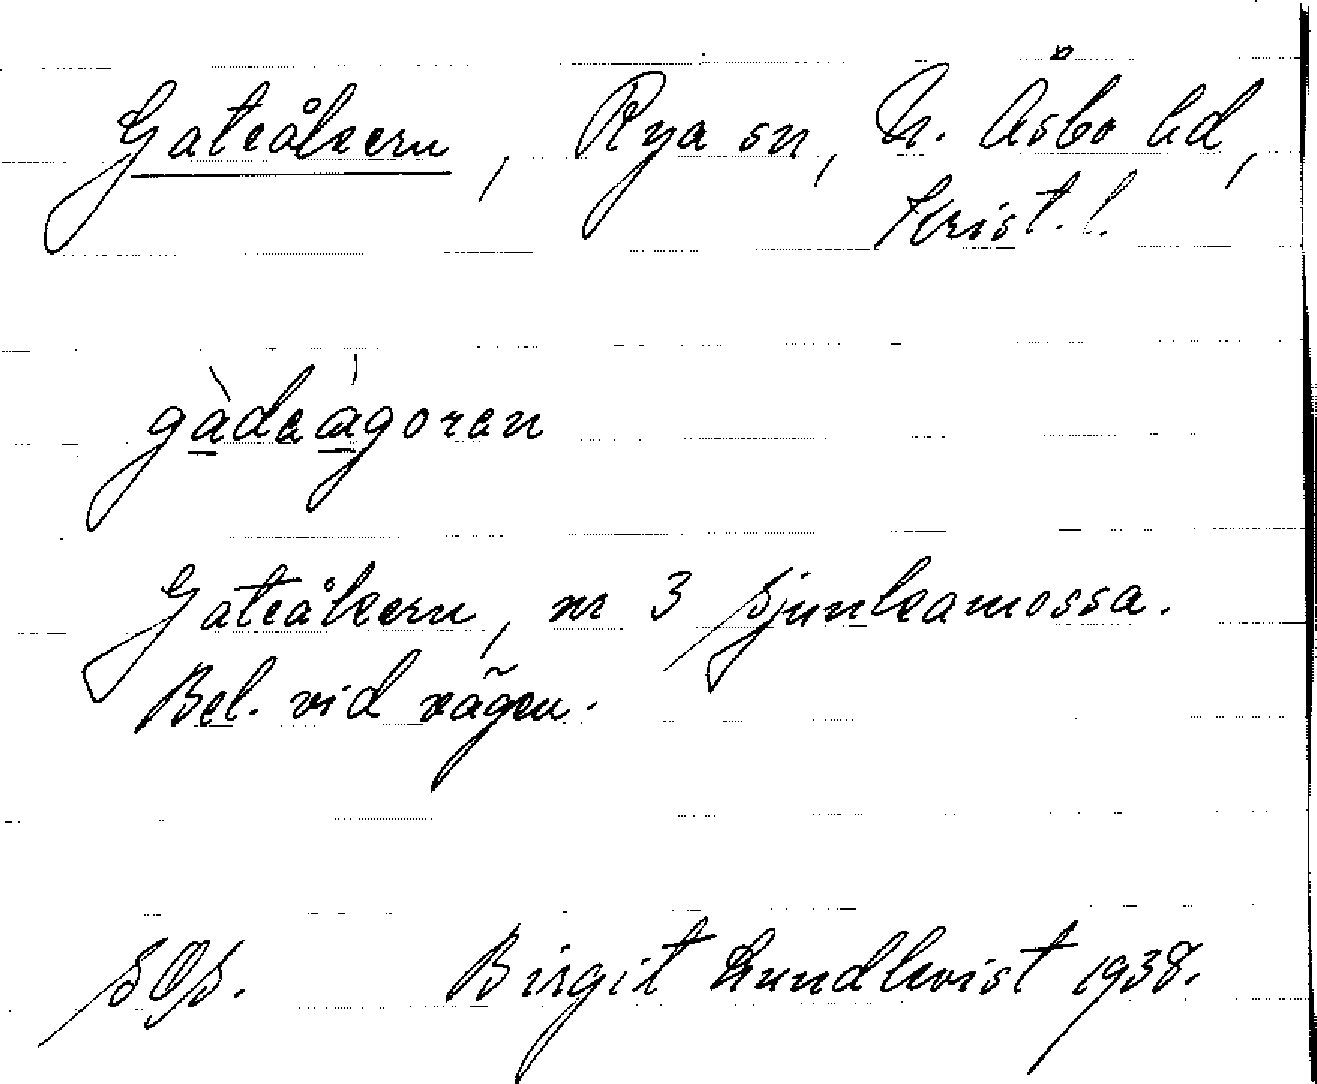 Gateåkern, Rya sn, N. Åsbo hd,
Krist. l.
gàdeàgoren
Gateåkern, nr 3 Sjunkamossa.
Bel. vid vägen.
SOS. Birgit Lundkvist 1938.